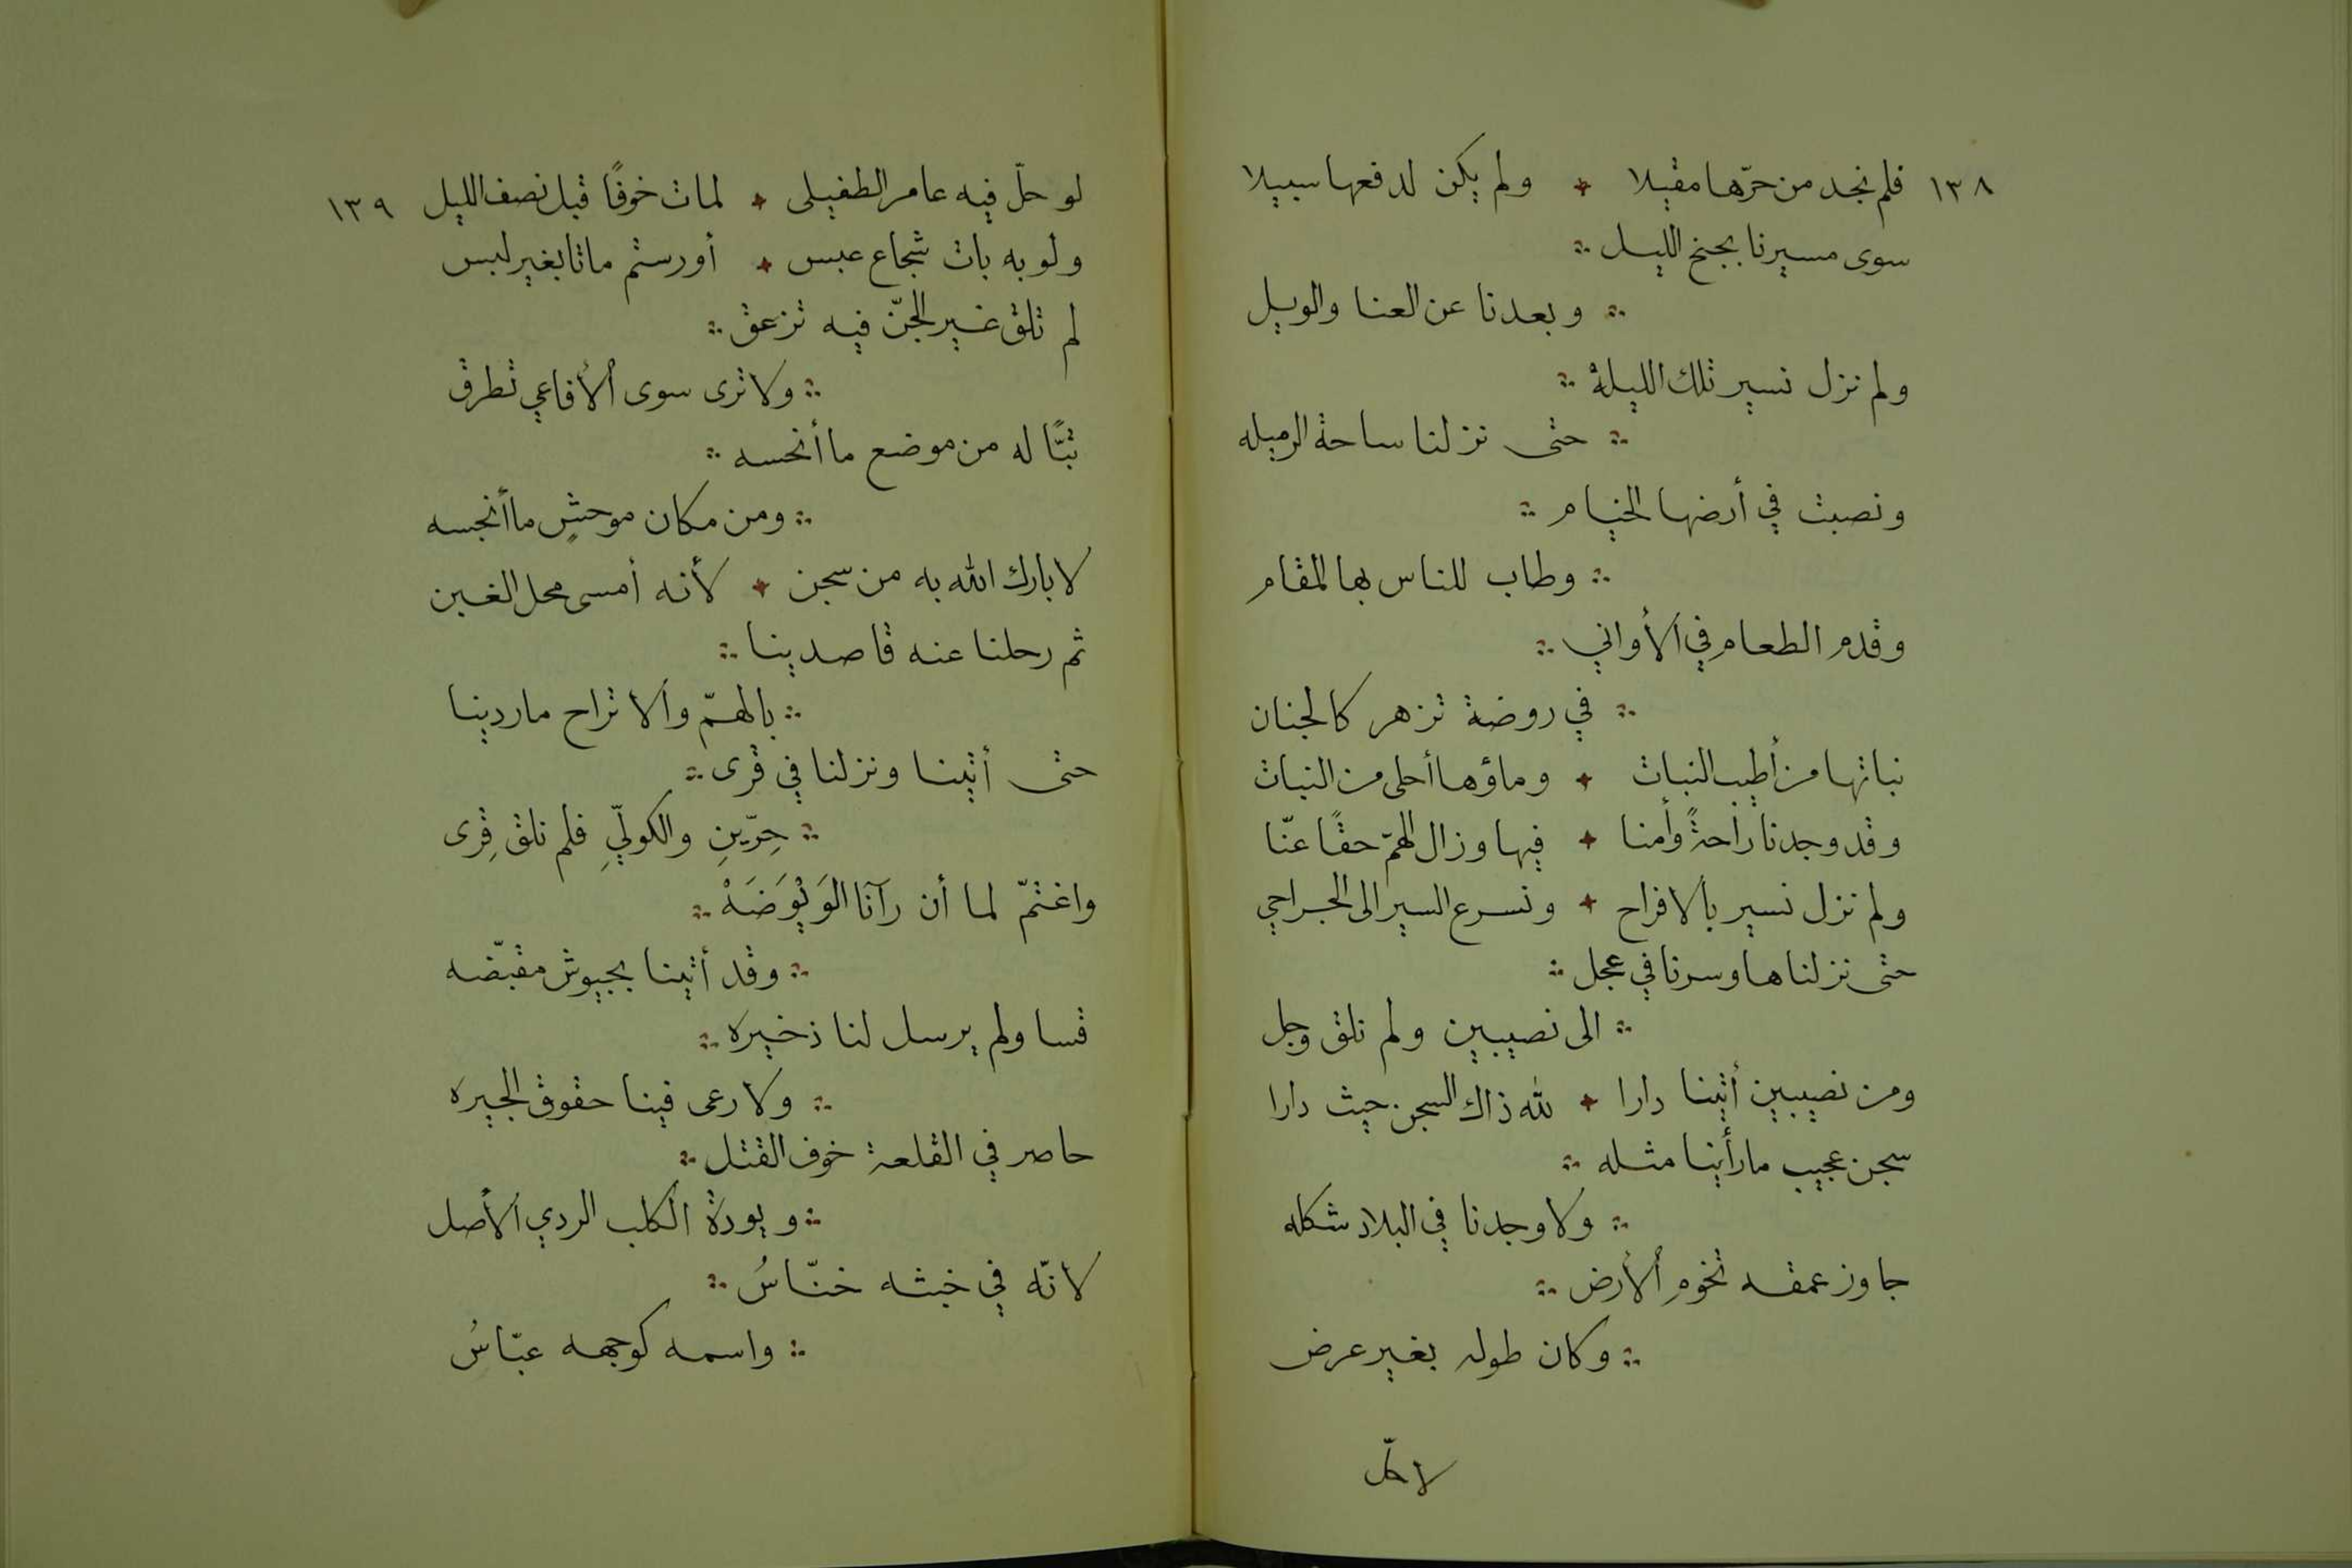 ١٣٨ فلم نجد من حرّها مقيلا ولم يكن لدفعها سبيلا
سوى مسيرنا بجنح الليل
وبعدنا عن العنا والويل
ولم نزل نسير تلك الليلة
حتى نزلنا ساحة الرميله
ونصبت في أرضها الخيام
وطاب للناس بها المقام
وقدم الطعام في الأواني
في روضة تزهر كالجنان
نباتها من أطيب النبات وماؤها أحلى من النبات
وقد وجدنا راحةً وأمنا فيها وزال الهمّ حقًا عنّا
ولم نزل نسير بالافراح ونسرع السير الى الجراحي
حتى نزلناها وسرنا في عجل
الى نصيبين ولم نلق وجل
ومن نصيبين أتينا دارا لله ذاك السجن حيث دارا
سجن عجيب ما رأينا مثله
ولا وجدنا في البلاد شكله
جاوز عمقه تخوم الأرض
وكان طوله بغير عرض
لو حلّ
لو حلّ فيه عامر الطفيلى لمات خوفًا قبل نصف الليل ١٣٩
ولو به بات شجاع عبس أو رستم ماتا بغير لبس
لم تلق غير الجنّ فيه تزعق
ولا ترى سوى الأفاعي تطرق
تبًّا له من موضع ما أنحسه
ومن مكان موحشٍ ما أنجسه
لا بارك الله به من سجن لأنه أمسى محل الغبن
ثم رحلنا عنه قاصدينا
بالهمّ والاتراح ماردينا
حتى أتينا ونزلنا في قرى
حِرّينِ والكوليِّ فلم نلق قِرى
واغتمّ لما أن رآنا الوَيْوَضَهْ
وقد أتينا بجيوش مقبّضه
قسا ولم يرسل لنا ذخيره
ولا رعى فينا حقوق الجيره
حاصر في القلعة خوف القتل
ويودةْ الكلب الردي الأصل
لانّه في خبثه خنّاسُ
واسمه كوجهه عبّاسُ